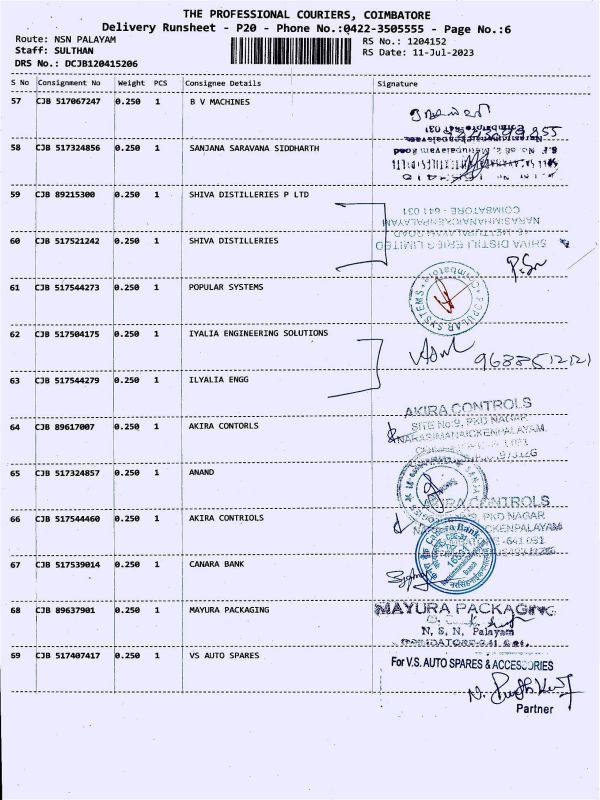 THE PROFESSIONAL COURIERS, COIMBATORE
Delivery Runsheet - P20 - Phone No.:0422-3505555 - Page No.:6
Route: NSN PALAYAM
RS No.: 1204152
Staff: SULTHAN
RS Date: 11-Jul-2023
DRS No.: DCJB120415206
S No Consignment No Weight PCS Consignee Details Signature
57 CJB 517067247 0.250 1 B V MACHINES
58 CJB 517324856 0.250 1 SANJANA SARAVANA SIDDHARTH
59 CJB 89215300 0.250 1 SHIVA DISTILLERIES P LTD
COIMBATORE - 641 031
NARASIMHANAICKENPALAYAM
SHIVA DISTILLERIES LIMITED
60 CJB 517521242 0.250 1 SHIVA DISTILLERIES
61 CJB 517544273 0.250 1 POPULAR SYSTEMS
POPULAR SYSTEMS
Coimbatore
62 CJB 517504175 0.250 1 IYALIA ENGINEERING SOLUTIONS
63 CJB 517544279 0.250 1 ILYALIA ENGG
AKIRA CONTROLS
64 CJB 89617007 0.250 1 AKIRA CONTORLS
SITE No:9, PKD NAGAR
NARASIMANAICKENPALAYAM,
65 CJB 517324857 0.250 1 ANAND
AKIRA CONTROLS
66 CJB 517544460 0.250 1 AKIRA CONTRIOLS
PKD NAGAR
641 031
67 CJB 517539014 0.250 1 CANARA BANK
Canara Bank
68 CJB 89637901 0.250 1 MAYURA PACKAGING
MAYURA PACKAGING
N, S, N, Palayam
69 CJB 517407417 0.250 1 VS AUTO SPARES
For V.S. AUTO SPARES & ACCESSORIES
Partner